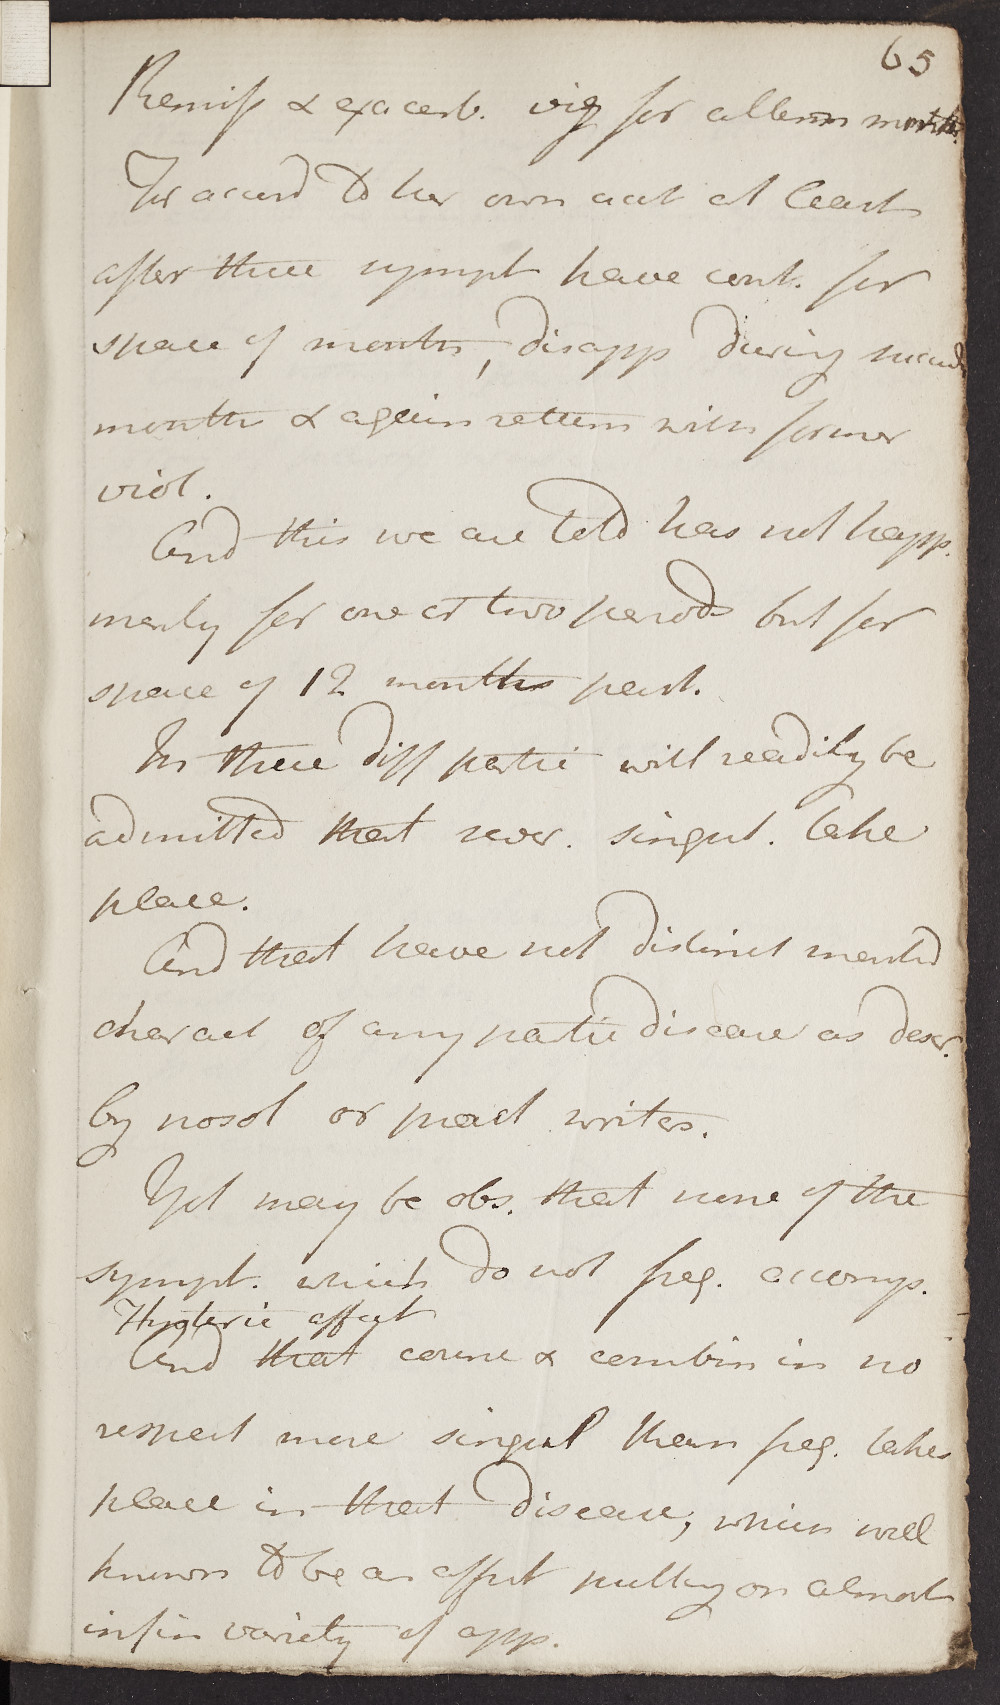 65
Remiss & exacerb. viz for altern months.
For accord to her own acct at least
after these sympt have cont. for
space of month, disapp during succeed
month & again return with former
viol.
And this we are told has not happ.
merely for one or two periods but for
space of 12 months past.
In these diff partic will readily be
admitted that sever. singul. take
place.
And that have not distinct marked
charact of any partic disease as descr.
by nosol or pract writers.
Yet may be obs. that none of the
sympt. which do not freq. accomp.
Hysteric affect
And that course & combin in no
respect more singul than freq. takes
place in that disease, which well
known to be an affect putting on almost
infin variety of app.